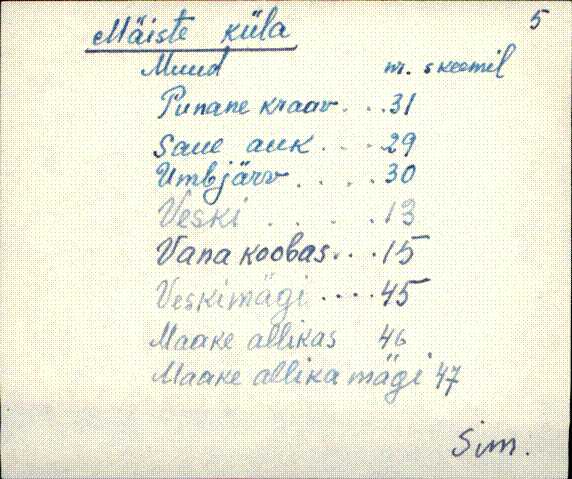 Mäiste küla 5
Muud nr. skeemil
Punane kraav. . . 31
Saue auk . . . . 29
Umbjärv . . . . 30
Veski . . . . . 13
Vana koobas. . . 15
Veskimägi . . . . 45
Maake allikas 46
Maake allika mägi 47
Sim.